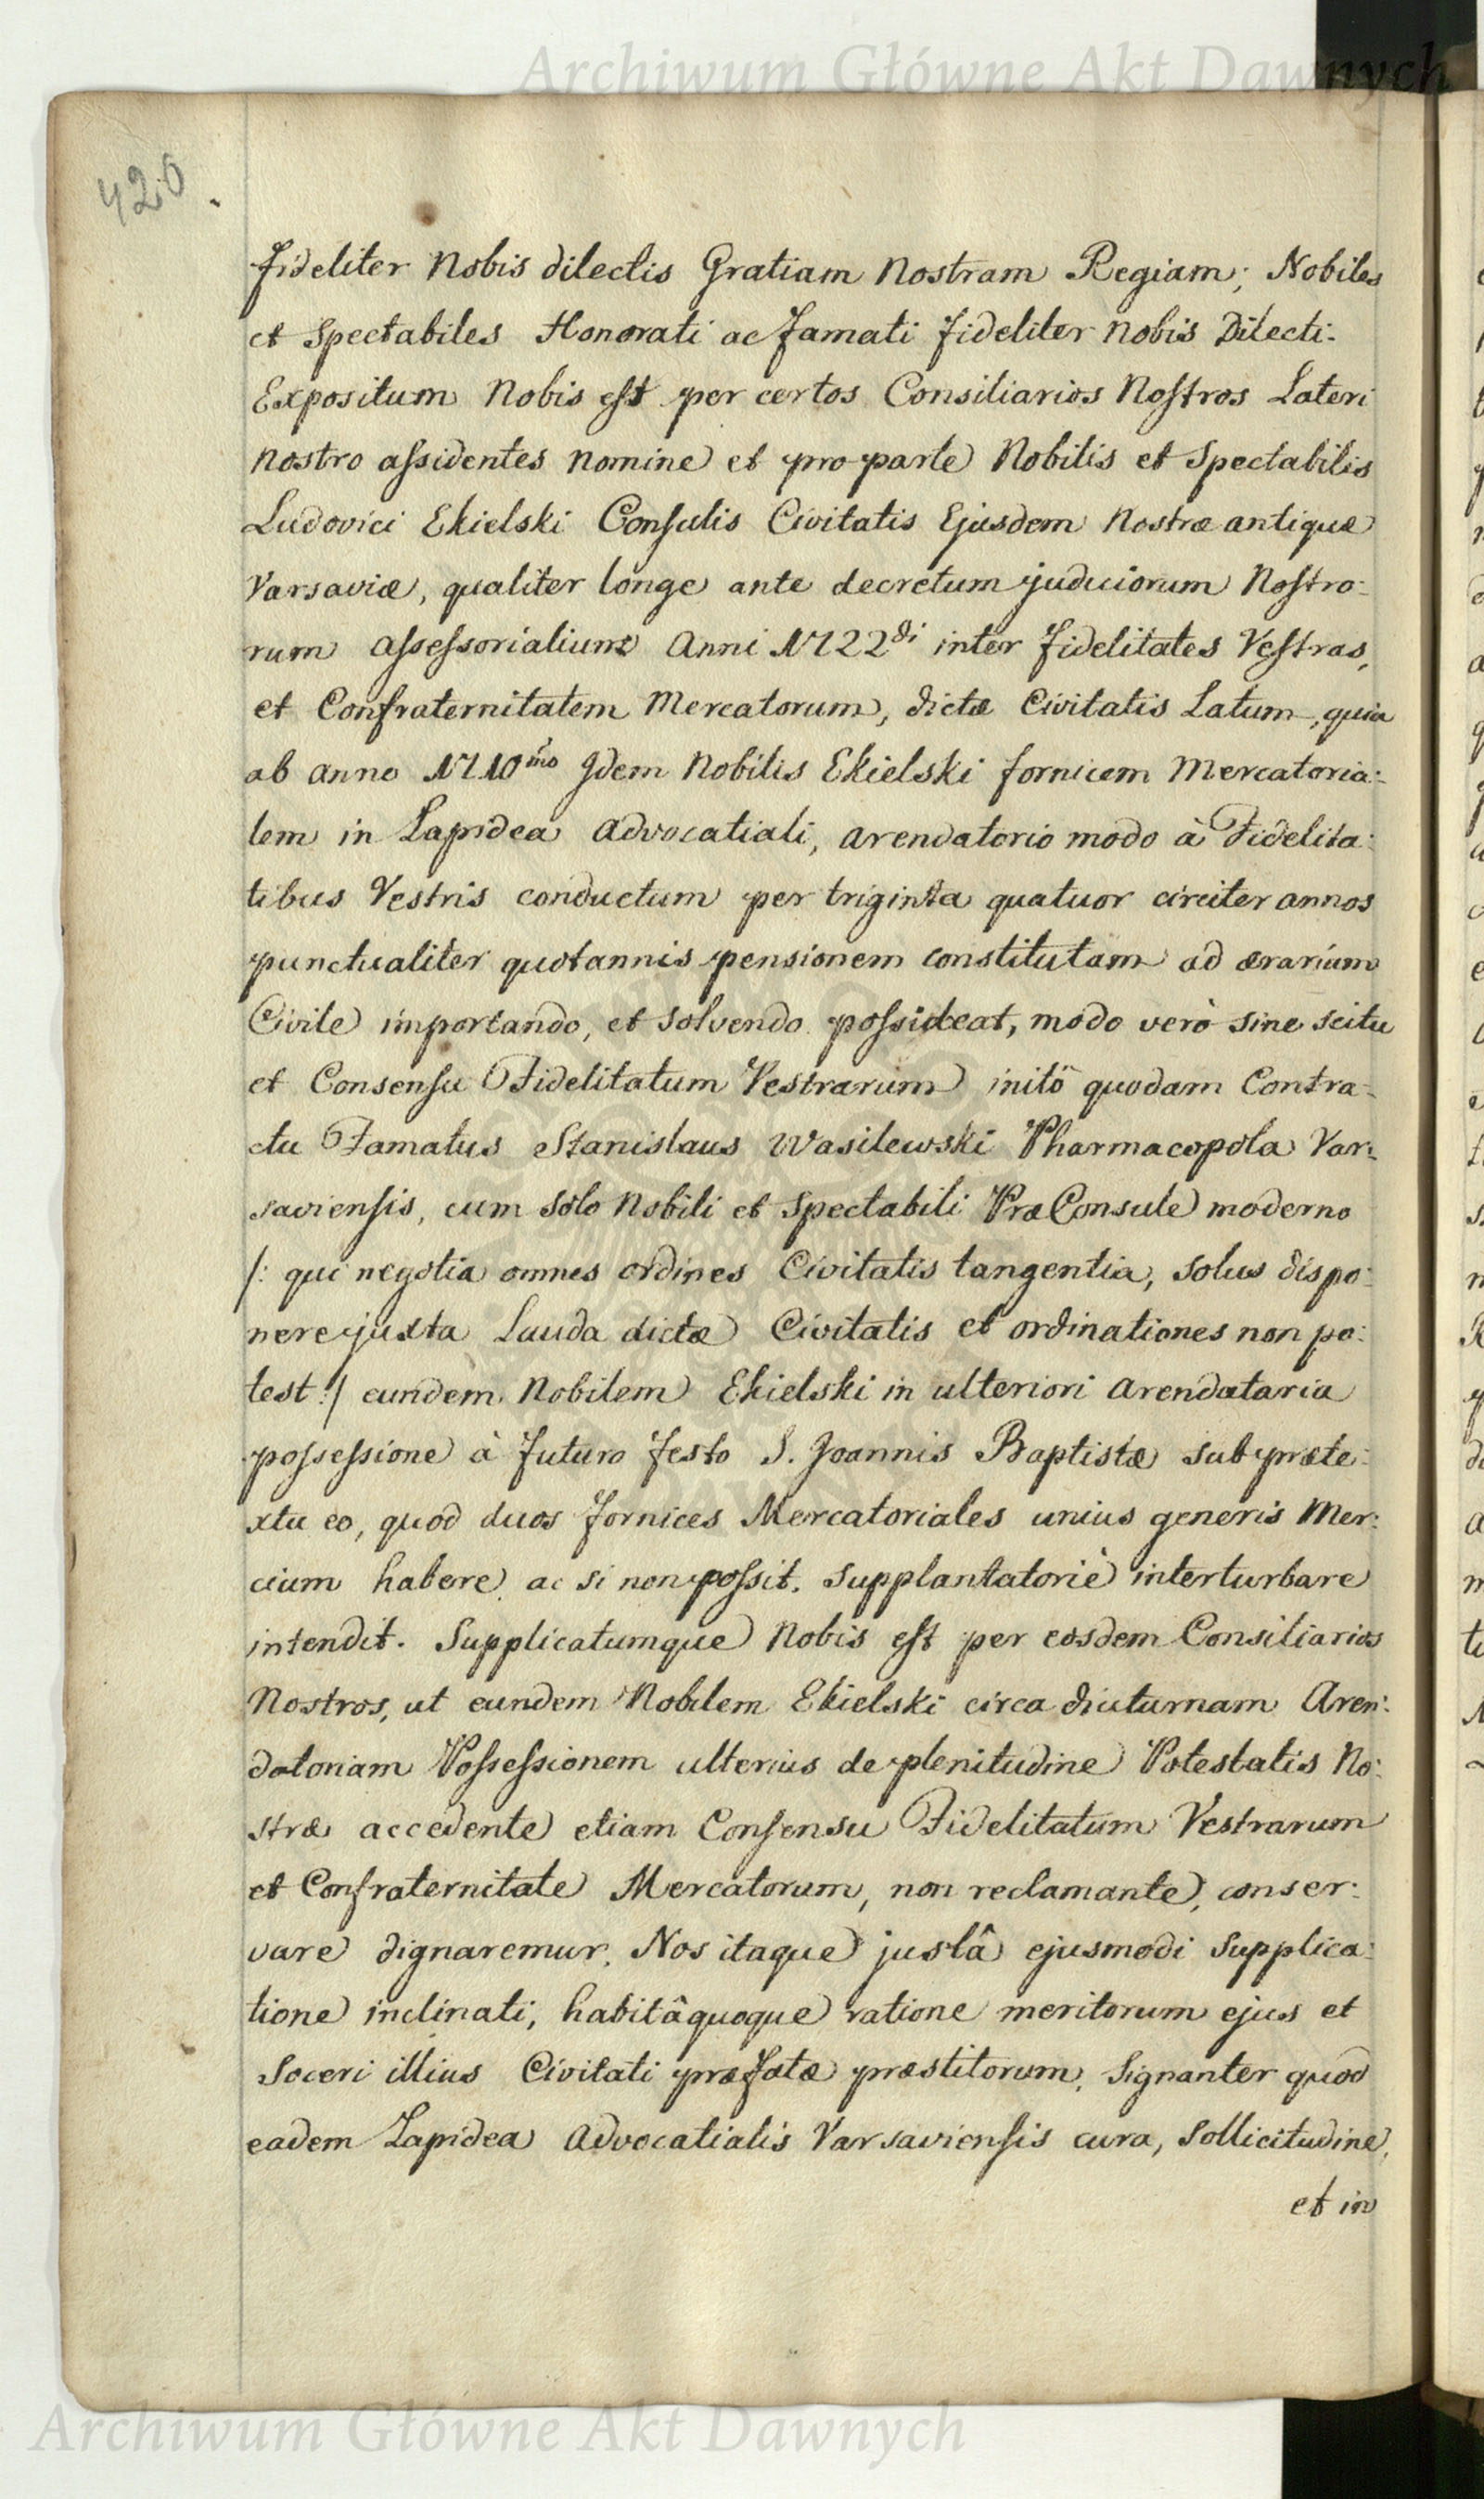 Archiwum Główne Akt Dawnych
420.
fideliter Nobis dilectis Gratiam Nostram Regiam; Nobiles
et Spectabiles Honorati ac famati fideliter Nobis Dilecti.
Expositum Nobis est per certos Consiliarios Nostros Lateri
nostro assidentes nomine et pro parte Nobilis et Spectabilis
Ludovici Ekielski Consulis Civitatis Ejusdem Nostræ antiquæ
Varsaviæ, qualiter longe ante decretum judiciorum Nostro:
rum Assessorialium Anni 1722di inter fidelitates Vestras,
et Confraternitatem Mercatorum, dictæ Civitatis Latum, quia
ab anno 1710mo Idem Nobilis Ekielski fornicem Mercatoria:
lem in Lapidea Advocatiali, arendatorio modo à Fidelita:
tibus Vestris conductum per triginta quatuor circiter annos
punctualiter quotannis pensionem constitutam ad ærarium
Civile importando, et solvendo possideat, modo verò sine scitu
et Consensu Fidelitatum Vestrarum initô quodam Contra:
ctu Famatus Stanislaus Wasilewski Pharmacopola Var:
saviensis, cum solo Nobili et Spectabili PræConsule moderno
/: qui negotia omnes ordines Civitatis tangentia, solus dispo:
nere juxta Lauda dictæ Civitatis et ordinationes non po:
test :/ eundem Nobilem Ekielski in ulteriori arendataria
possessione à futuro festo S. Joannis Baptistæ sub præte:
xtu eo, quod duos fornices Mercatoriales unius generis Mer:
cium habere ac si non possit. supplantatoriè interturbare
intendit. Supplicatumque Nobis est per eosdem Consiliarios
Nostros, ut eundem Nobilem Ekielski circa diuturnam Aren:
datoriam Possessionem ulterius de plenitudine Potestatis No:
stræ accedente etiam Consensu Fidelitatum Vestrarum
et Confraternitate Mercatorum, non reclamante, conser:
vare dignaremur. Nos itaque justâ ejusmodi Supplica:
tione inclinati, habitâ quoque ratione meritorum ejus et
Soceri illius Civitati præfatæ præstitorum, Signanter quod
eadem Lapidea Advocatialis Varsaviensis cura, sollicitudine,
et in
Archiwum Główne Akt Dawnych